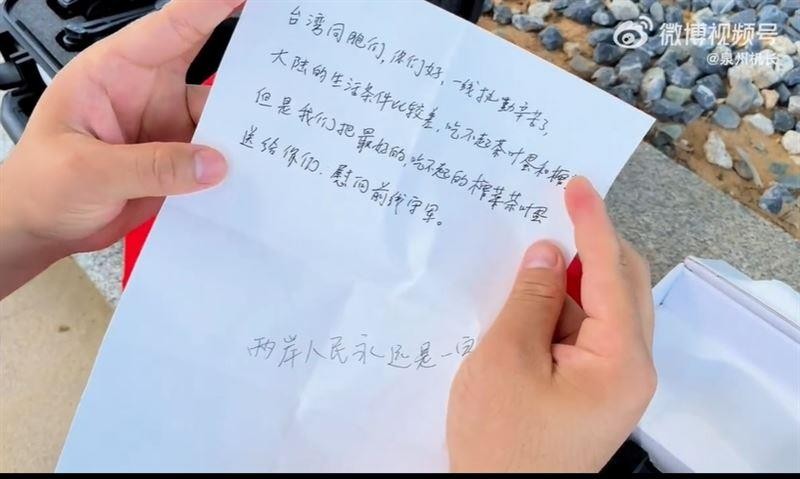 微博视频号
@泉州机长
台湾同胞们,你们好,一线执勤辛苦了,
大陆的生活条件比较差,吃不起茶叶蛋和榨
但是我们把最好的吃不起的榨菜茶叶蛋
送给你们.慰问前线守军。
两岸人民永远是一